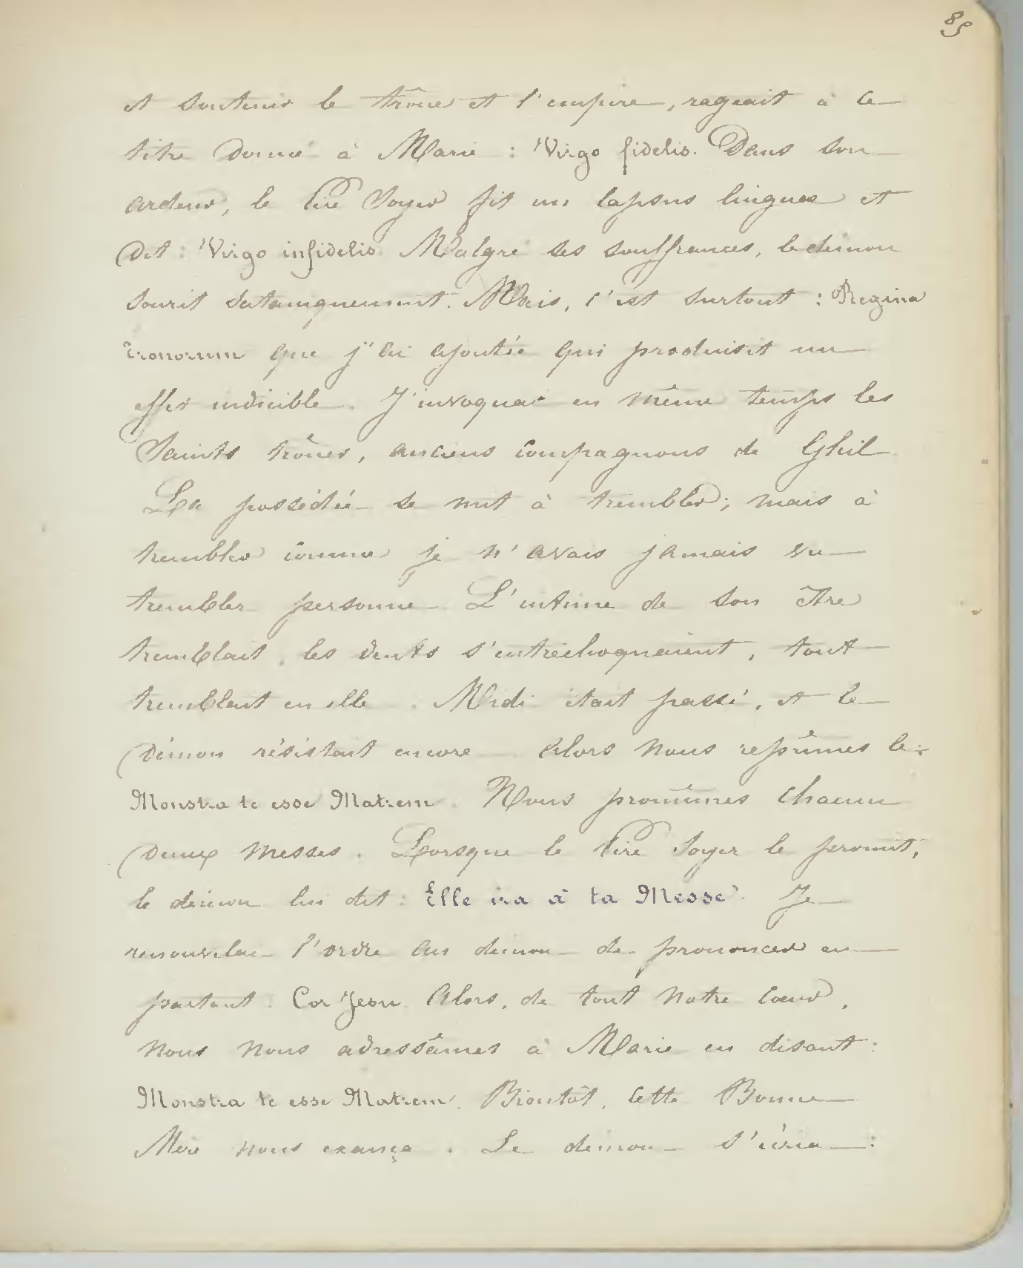 85
et soutenir le trône et l'empire, rageait à ce
titre donné à Marie : Virgo fidelis. Dans son
ardeur, le Père Soyer fit un lapsus linguae et
dit : Virgo infidelis. Malgré ses souffrances, le démon
sourit sataniquement. Mais, c'est surtout : Regina
Tronorum que j'ai ajoutée qui produisit un
effet indicible. J'invoquai en même temps les
Saints trônes, anciens compagnons de Ghil.
La possédée se mit à trembler ; mais à
trembler comme je n'avais jamais vu
trembler personne. L'intime de son être
tremblait, les dents s'entrechoquaient, tout
tremblait en elle. Midi était passé, et le
démon résistait encore. Alors nous reprîmes le :
Monstra te esse Matrem. Nous promîmes chacun
deux Messes. Lorsque le Père Soyer le promit,
le démon lui dit : Elle ira à ta Messe. Je
renouvelai l'ordre au démon de prononcer en
partant : Cor Jesu. Alors, de tout notre coeur,
nous nous adressâmes à Marie en disant :
Monstra te esse Matrem. Bientôt, cette Bonne
Mère nous exauça. Le démon s'écria :